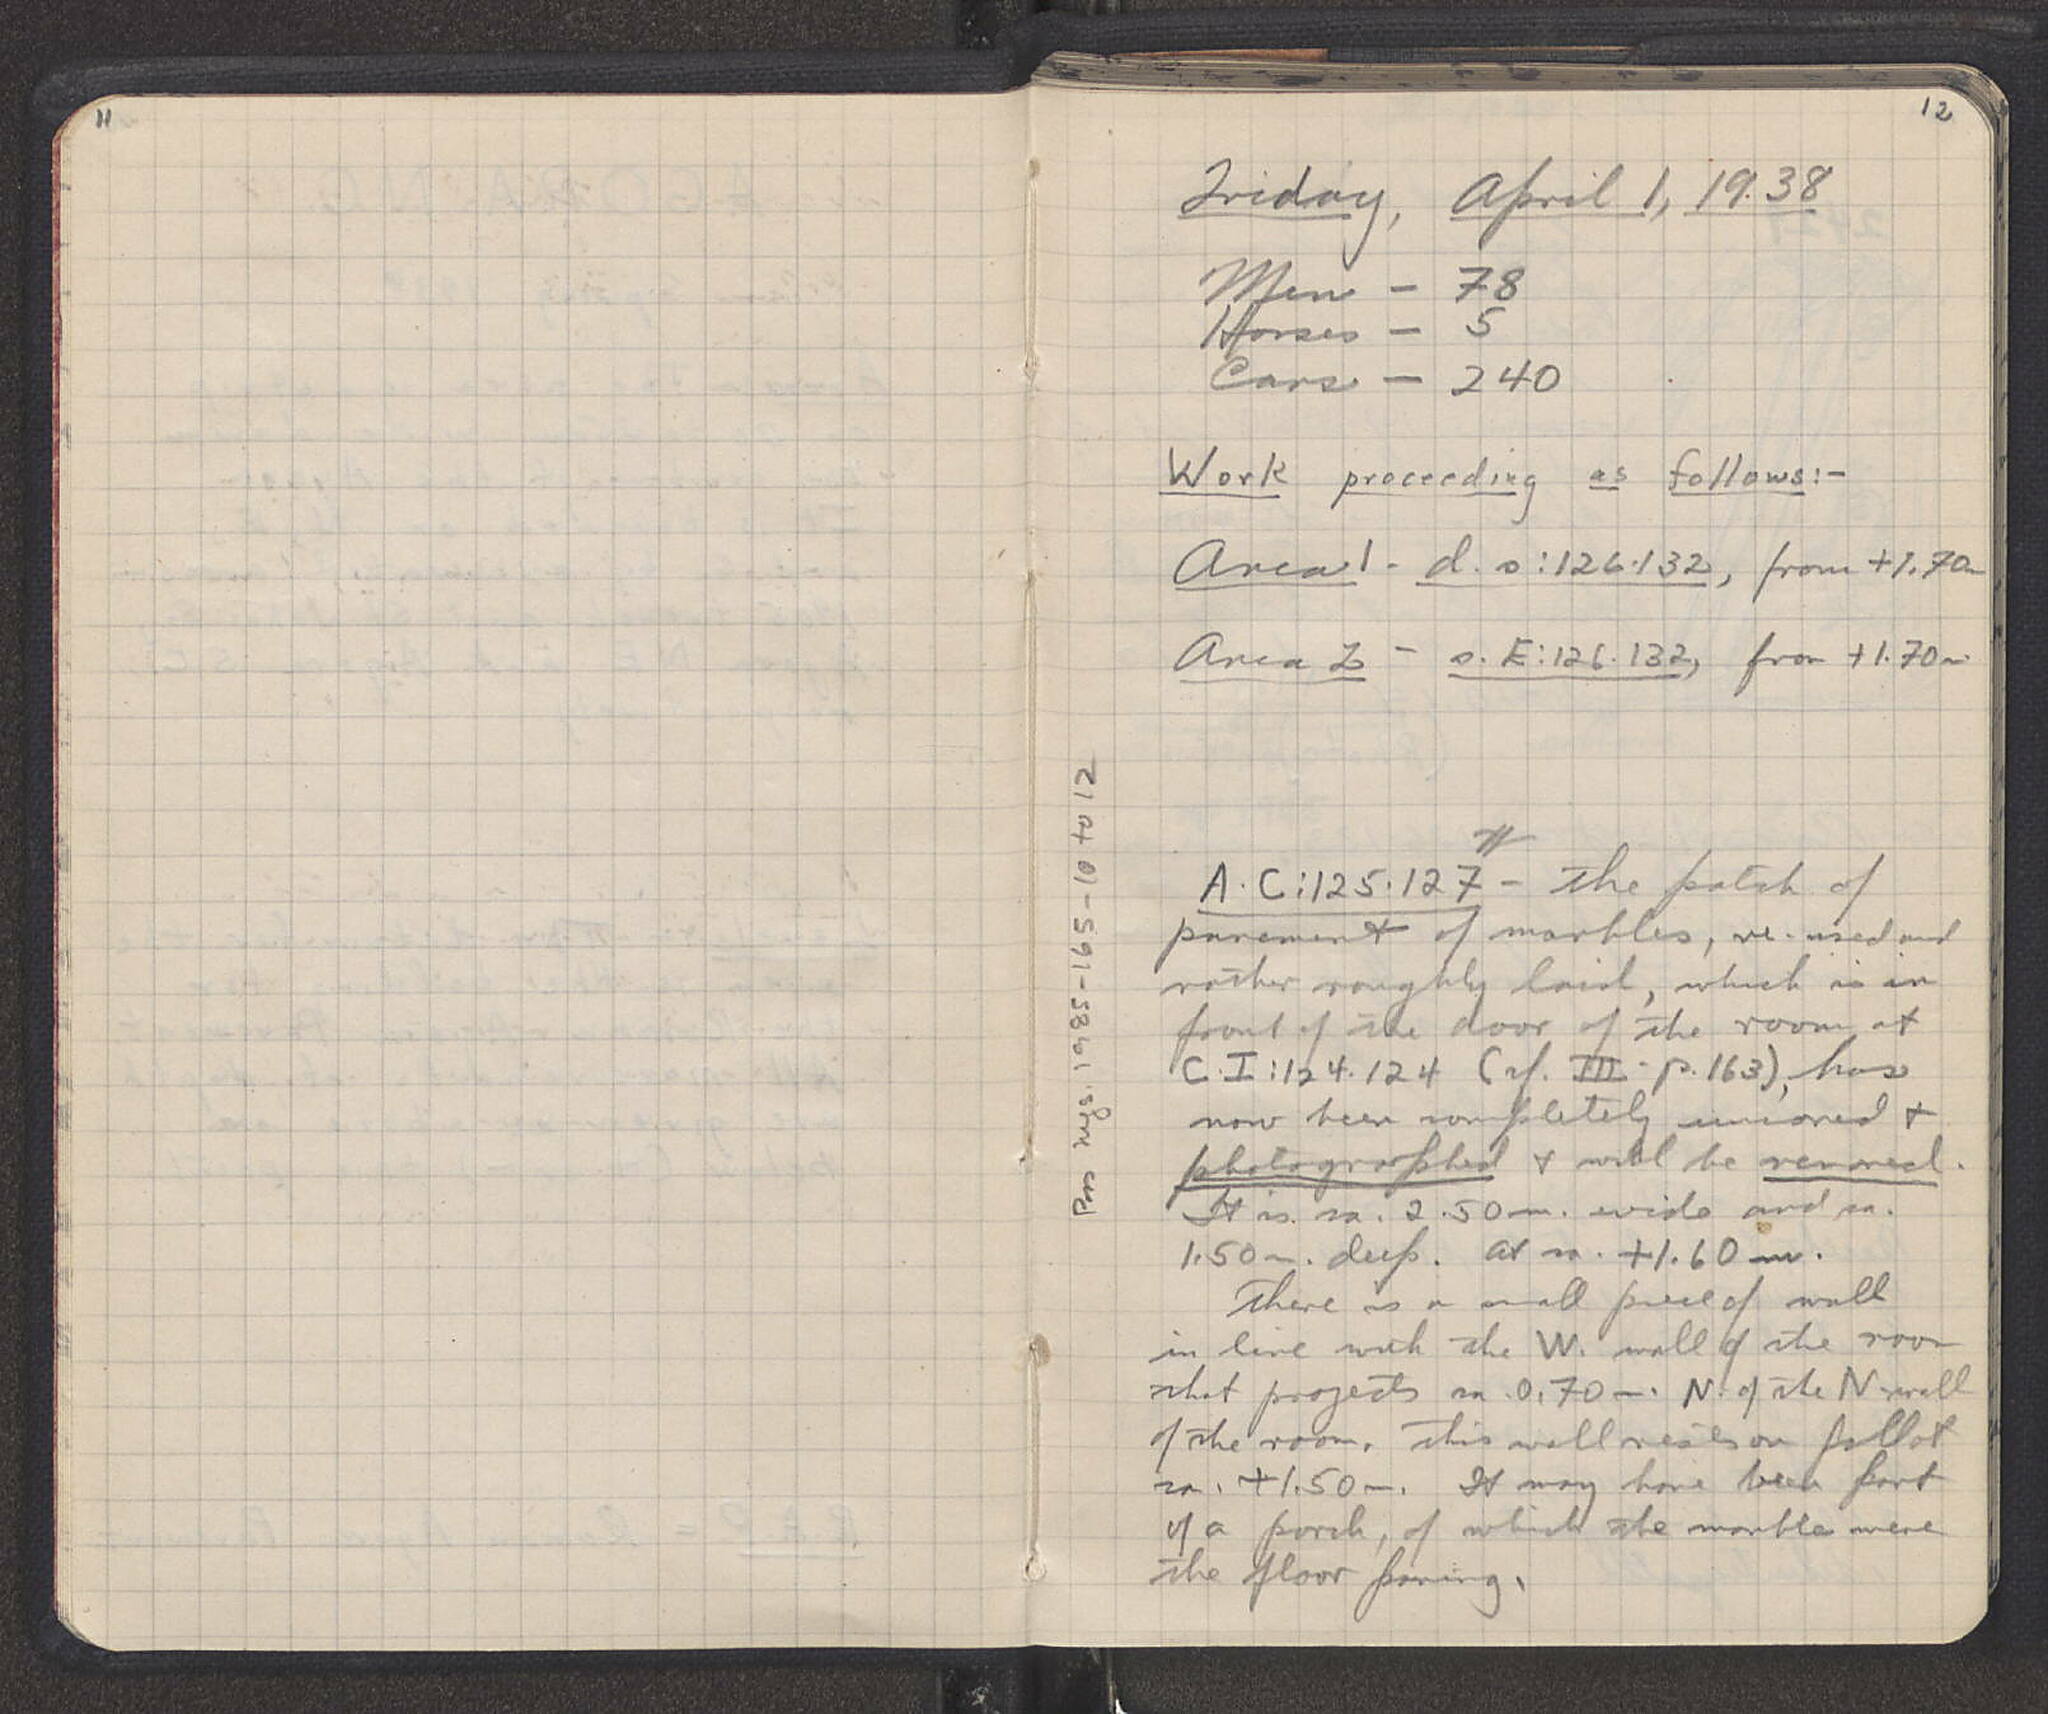 11
12
Friday, April 1, 1938
Men - 78
Horses - 5
Cars - 240
Work proceeding as follows:-
Area 1 - d. s:126.132, from +1.70m
Area 2 - s. E:126.132, from +1.70m
A.C:125.127 - The patch of
pavement of marbles, re-used and
rather roughly laid, which is in
front of the door of the room at
C.I:124.124 (cf. III - p. 163), has
now been completely uncovered +
photographed + will be removed.
It is ca. 2.50m. wide and ca.
1.50m. deep. At ca. +1.60 m.
There is a small piece of wall
in line with the W. wall of the room
that projects ca. 0.70m. N. of the N. wall
of the room. This wall rests on fill at
ca. +1.50m. It may have been part
of a porch, of which the marble were
the floor paving.
Pos Nys. 1985-195-10 to 12